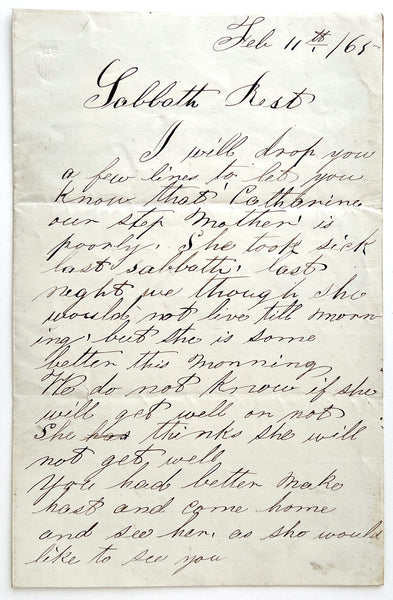 Feb 11th /65
Sabbath Rest
I will drop you
a few lines to let you
know that Catharine
our step Mother is
poorly. She took sick
last sabbath. last
night we though she
would not live till morn
ing. but she is some
better this morning
We do not know if she
will get well or not
She has thinks she will
not get well
you had better make
hast and come home
and see her. as she would
like to see you